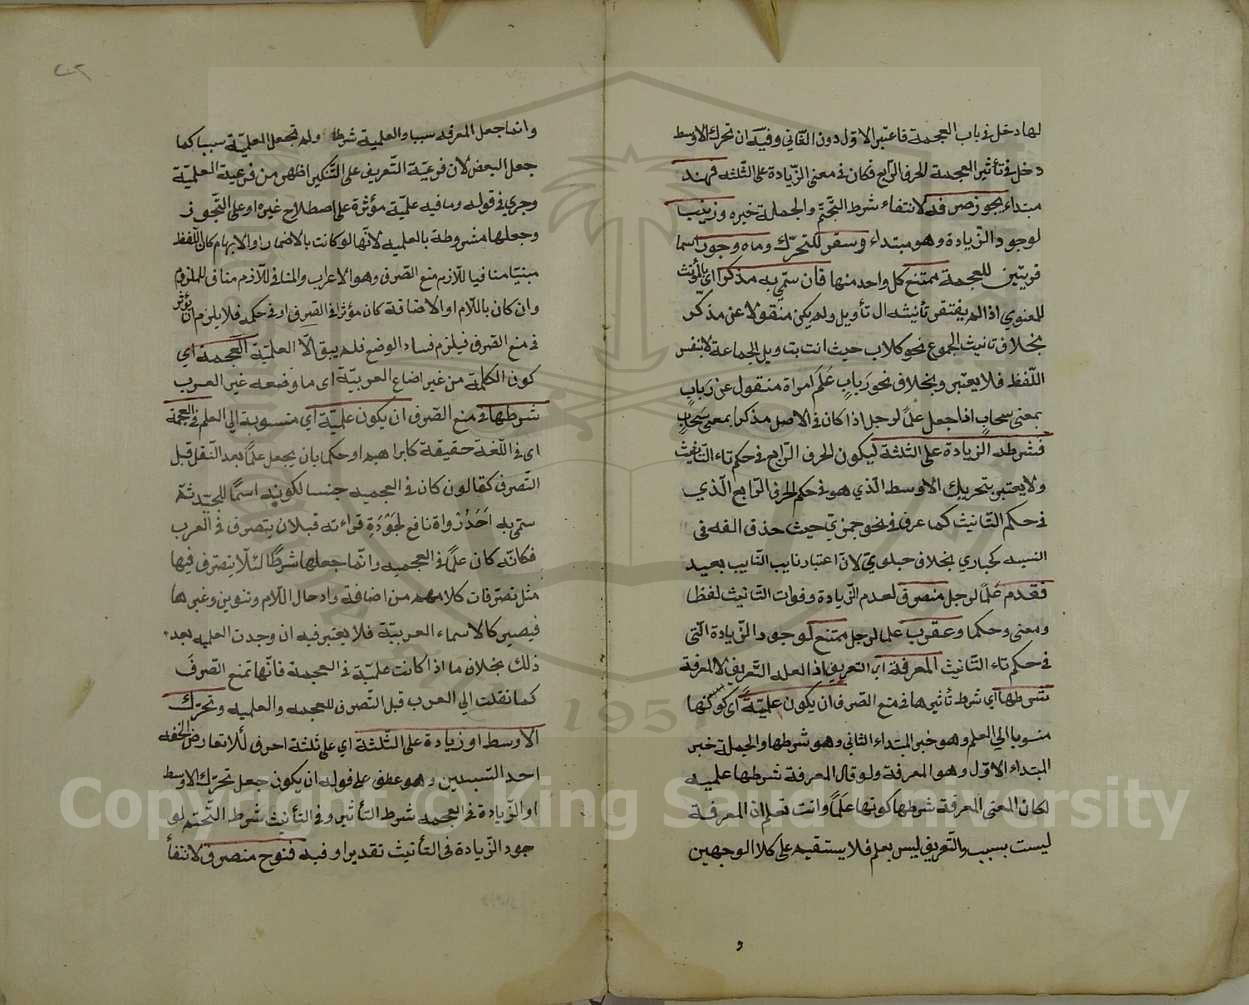 لها دخل في باب العجمة فاعتبر الاول دون الثاني وفيه ان تحرك الاوسط
دخل في تأثير العجمة الحرف الرابع فكان في معنى الزيادة على الثلثه فهند
مبتداء يجوز صرفه لانتفاء شرط التحتم والجملة خبره وزينب
لوجود الزيادة وهو مبتداء وسقر للتحرك وماه وجور اسما
قريتين للعجمة ممتنع كل واحد منها فان سمى به مذكر اي بالمؤنث
المعنوي اذا لم يفتقر تأنيثه الى تأويل ولم يكن منقولا عن مذكر
بخلاف تانيث الجموع نحو كلاب حيث انت بتاويل الجماعة لا بنفس
اللفظ فلا يعتبر وبخلاف نحو رباب علم امراة منقول عن رباب
بمعنى سحاب اذا جعل علما لرجل اذا كان في الاصل مذكرا بمعنى سحاب
فشرطه الزيادة على الثلثة ليكون الحرف الرابع في حكم تاء التانيث
ولا يعتبر تحريك الاوسط الذي هو في حكم الحرف الرابع الذي
في حكم التانيث كما عرف في نحو جمزي حيث حذف الفه في
النسبه كحباري بخلاف حبلوي لان اعتبار نايب النايب بعيد
فقدم علما لرجل منصرف لعدم الزيادة وفوات التانيث لفظا
ومعنى وحكما وعقرب علما لرجل ممتنع لوجود الزيادة التي
في حكم تاء التانيث المعرفة اي التعريف اذ العله التعريف لا المعرفة
شرطها اي شرط تأثيرها في منع الصرف ان يكون علمية اي كونها
منسوبا الي العلم وهو خبر المبتداء الثاني وهو شرطها والجملة خبر
المبتداء الاول وهو المعرفة ولو قال المعرفة شرطها علميه
لكان المعنى المعرفة شرطها كونها علما وانت تعلم ان المعرفة
ليست بسبب والتعريف ليس بعلم فلا يستقيم على كلا الوجهين
و
وانما جعل المعرفه سببا والعلمية شرطا ولم تجعل العلية سببا كما
جعل البعض لان فرعية التعريف على التنكير اظهر من فرعية العلمية
وجري في قوله وما فيه علمية مؤثرة على اصطلاح غيره او على التجوز
وجعلها مشروطة بالعلميه لانها لو كانت بالاضمار او الابهام كان اللفظ
مبنيا منافيا للازم منع الصرف وهو الاعراب والمنافي للازم منافى للملزوم
وان كان باللام او الاضافة كان مؤثرا في الصرف او في حكمه فلا يلزم تأثير
في منع الصرف فيلزم فساد الوضع فلم يبق الا العلمية العجمة اي
كون الكلمة من غير اضاع العربية اى ما وضعه غير العرب
شرطها في منع الصرف ان يكون علمية اي منسوبة الي العلم في العجمة
اى في اللغة حقيقة كابراهيم او حكما بان يجعل علما بعد النقل قبل
التصرف كقالون كان في العجميه جنسا لكونه اسما للجيد ثم
سمى به احد رواة نافع لجودة قراءته قبل ان يتصرف في العرب
فكانه كان علما في العجميه وانما جعلها شرطا لئلا يتصرف فيها
مثل تصرفات كلامهم من اضافة وادخال اللام وتنوين وغيرها
فيصير كالاسماء العربية فلا يعتبر فيه ان وجدت العلميه بعد
ذلك بخلاف ما اذا كانت علمية في العجمة فانها تمنع الصرف
كما نقلت الي العرب قبل التصرف للعجمه والعلميه وتحرك
الاوسط او زيادة على الثلثة اي على ثلثة احرف لئلا تعارض الخفه
احد السببين وهو عطف على قوله ان يكون جعل تحرك الاوسط
او الزيادة في العجمه شرط التأثير وفي التأنيث شرط التحتم لو
جود الزيادة في التأنيث تقديرا وفيه فنوح منصرف لانتفا
Copyright © King Saud University
195